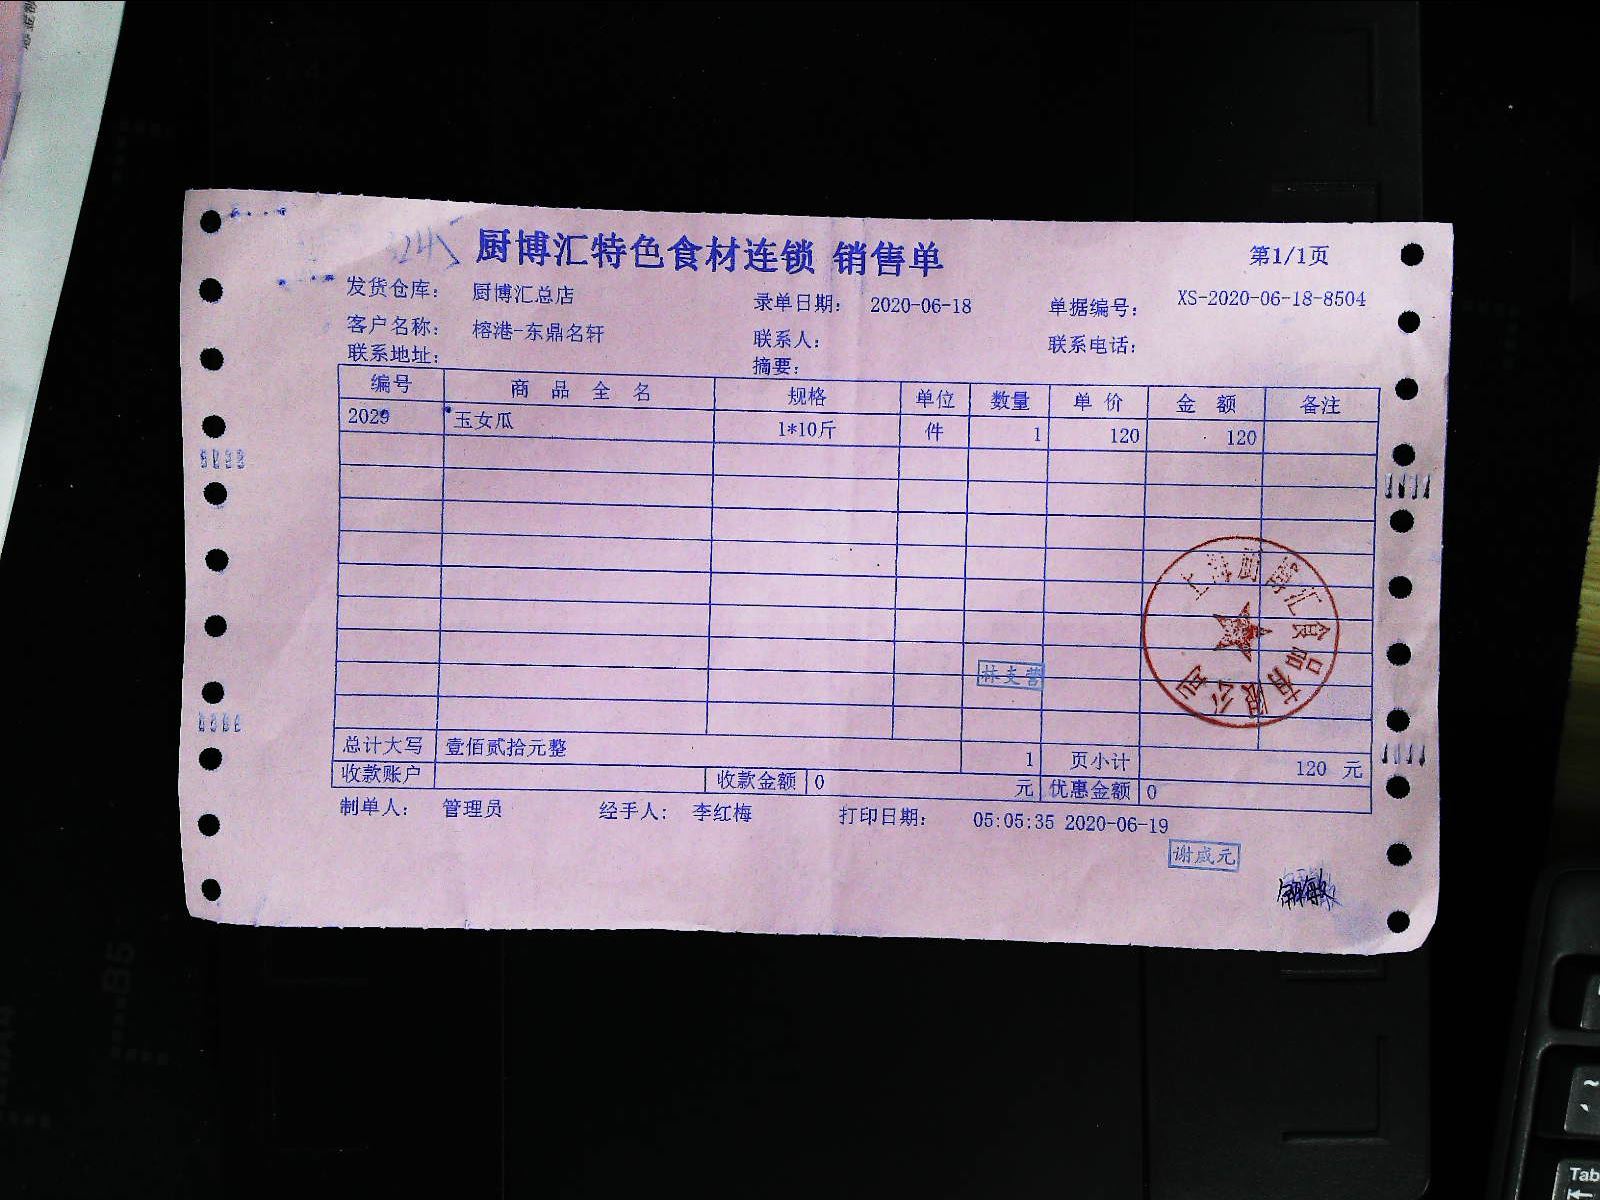 厨博汇特色食材连锁 销售单
第1/1页
发货仓库： 厨博汇总店 录单日期： 2020-06-18 单据编号： XS-2020-06-18-8504
客户名称： 榕港-东鼎名轩 联系人： 联系电话：
联系地址： 摘要：
编号 商品全名 规格 单位 数量 单价 金额 备注
2029 玉女瓜 1*10斤 件 1 120 120
上海厨博汇食品有限公司
林支营
总计大写 壹佰贰拾元整 1 页小计 120 元
收款账户 收款金额 0 元 优惠金额 0
制单人： 管理员 经手人： 李红梅 打印日期： 05:05:35 2020-06-19
谢咸元
B5
Tab